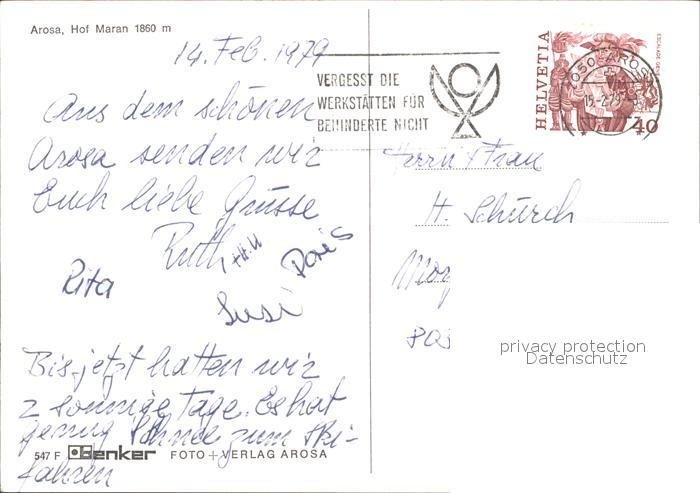 Arosa, Hof Maran 1860 m
14. Feb. 1979
Aus dem schönen
Arosa senden wir
Euch liebe Grüsse
Ruth
Doris
Rita
Susi
Bis jetzt hatten wir
2 sonnige Tage. Es hat
genug Schnee zum Ski-
fahren
547 F Genker FOTO + VERLAG AROSA
VERGESST DIE
WERKSTÄTTEN FÜR
BEHINDERTE NICHT
7050 AROSA
HELVETIA
40
Herrn + Frau
H. Schürch
privacy protection
Datenschutz